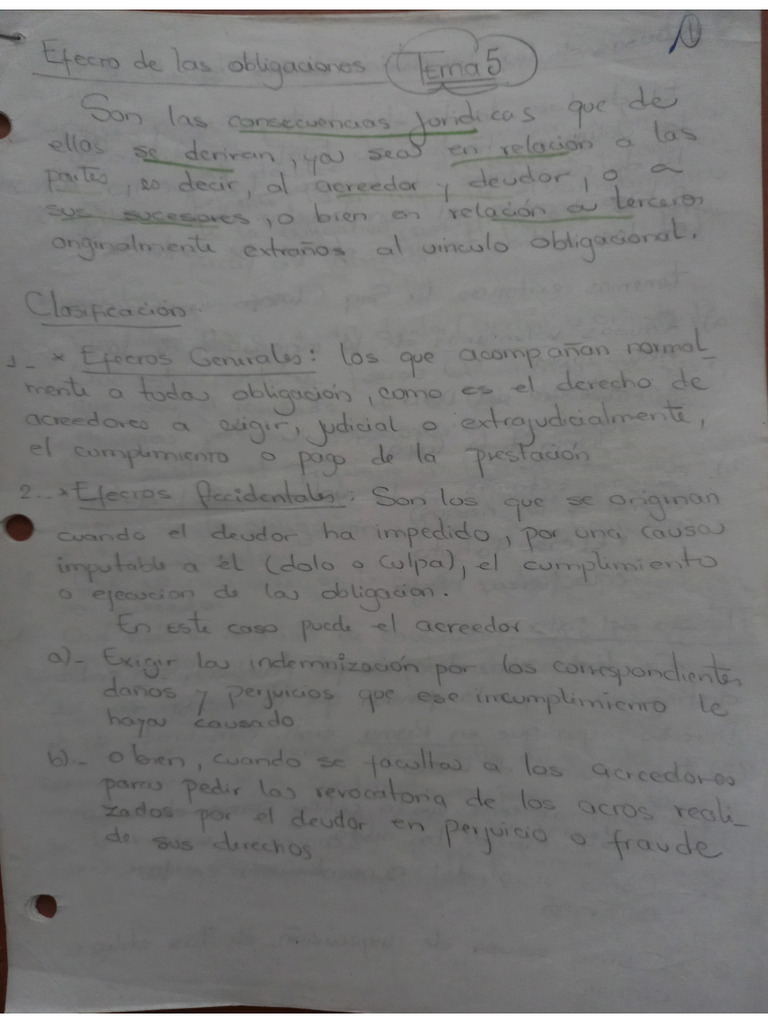 1
Efecto de las obligaciones Tema 5
Son las consecuencias jurídicas que de
ellas se derivan, ya sea en relación a las
partes, es decir, al acreedor y deudor, o a
sus sucesores, o bien en relación a terceros
originalmente extraños al vinculo obligacional.
Clasificación
1_ * Efectos Generales: los que acompañan normal_
mente a toda obligación, como es el derecho de
acreedores a exigir, judicial o extrajudicialmente,
el cumplimiento o pago de la prestación
2._ * Efectos Accidentales: Son los que se originan
cuando el deudor ha impedido, por una causa
imputable a él (dolo o culpa), el cumplimiento
o ejecucion de la obligacion.
En este caso puede el acreedor
a)- Exigir la indemnización por los correspondientes
daños y perjuicios que ese incumplimiento le
haya causado
b)- o bien, cuando se faculta a los acreedores
para pedir la revocatoria de los actos reali_
zados por el deudor en perjuicio o fraude
de sus derechos